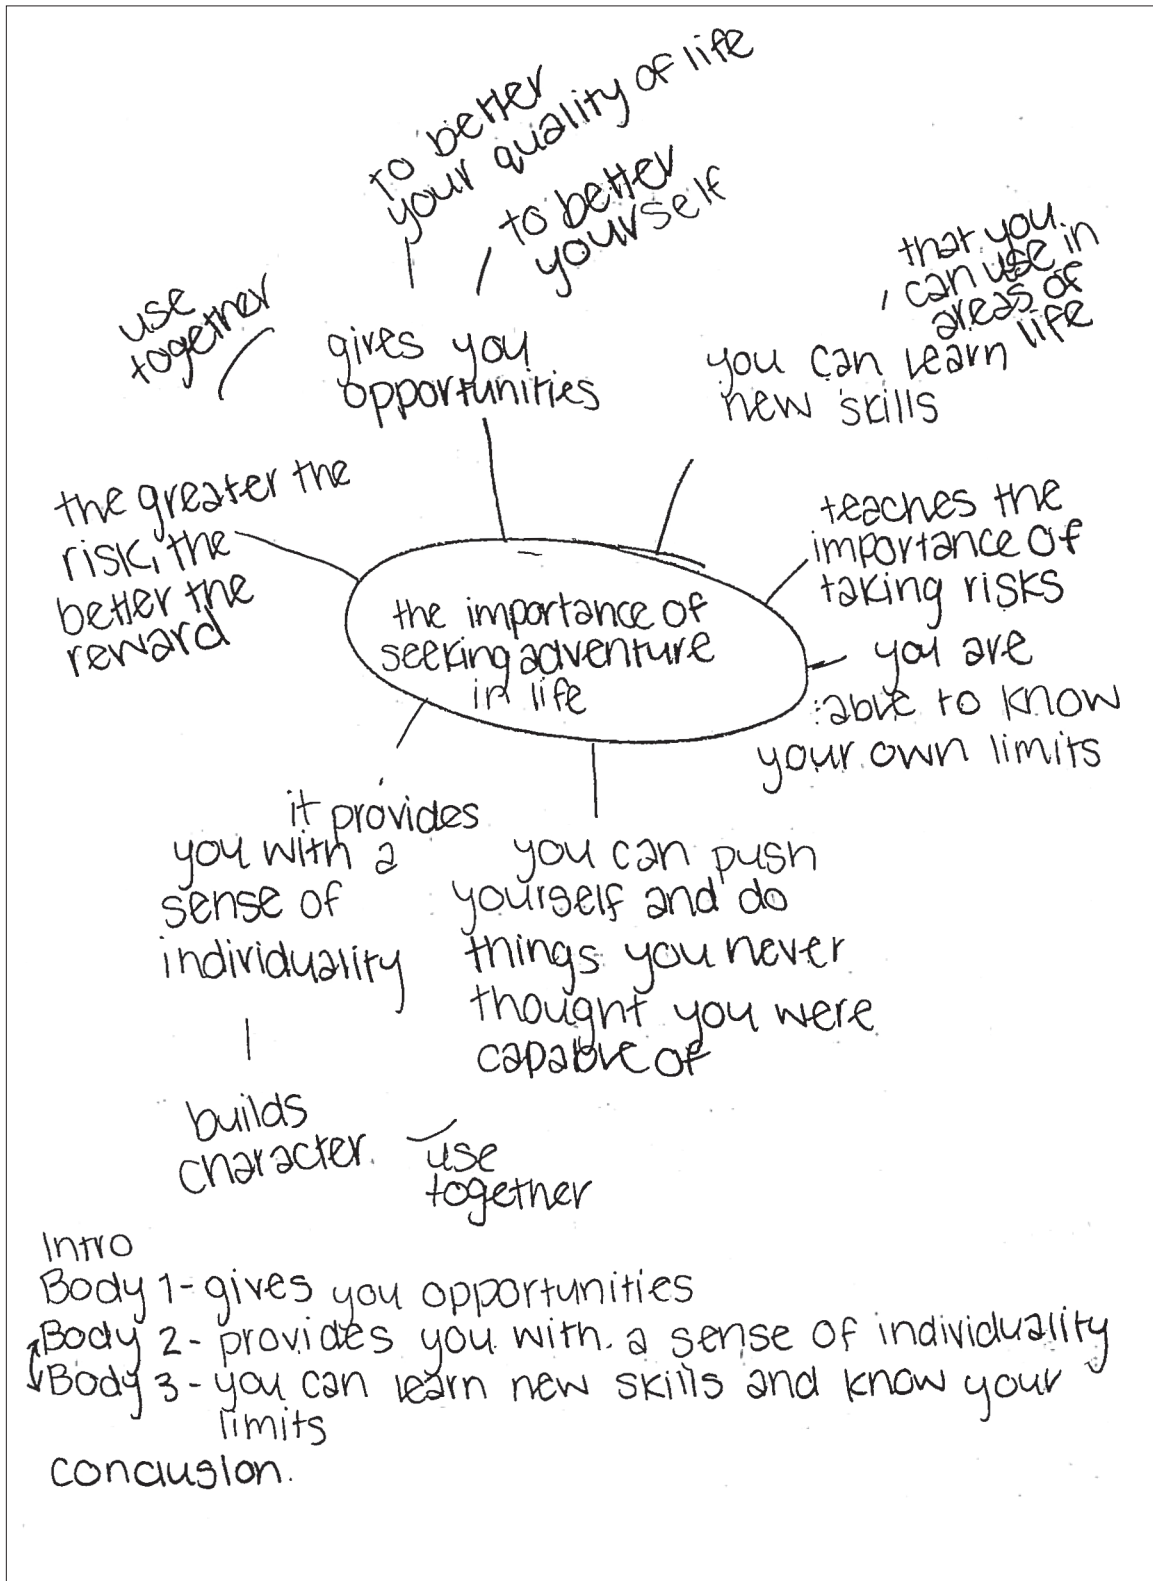 to better
your quality of life
to better
yourself
use
together
gives you
opportunities
that you
can use in
areas of
life
you can learn
new skills
the greater the
risk, the
better the
reward
teaches the
importance of
taking risks
the importance of
seeking adventure
in life
you are
able to know
your own limits
it provides
you with a
sense of
individuality
you can push
yourself and do
things you never
thought you were
capable of
builds
character.
use
together
Intro
Body 1 - gives you opportunities
Body 2 - provides you with a sense of individuality
Body 3 - you can learn new skills and know your
limits
conclusion.